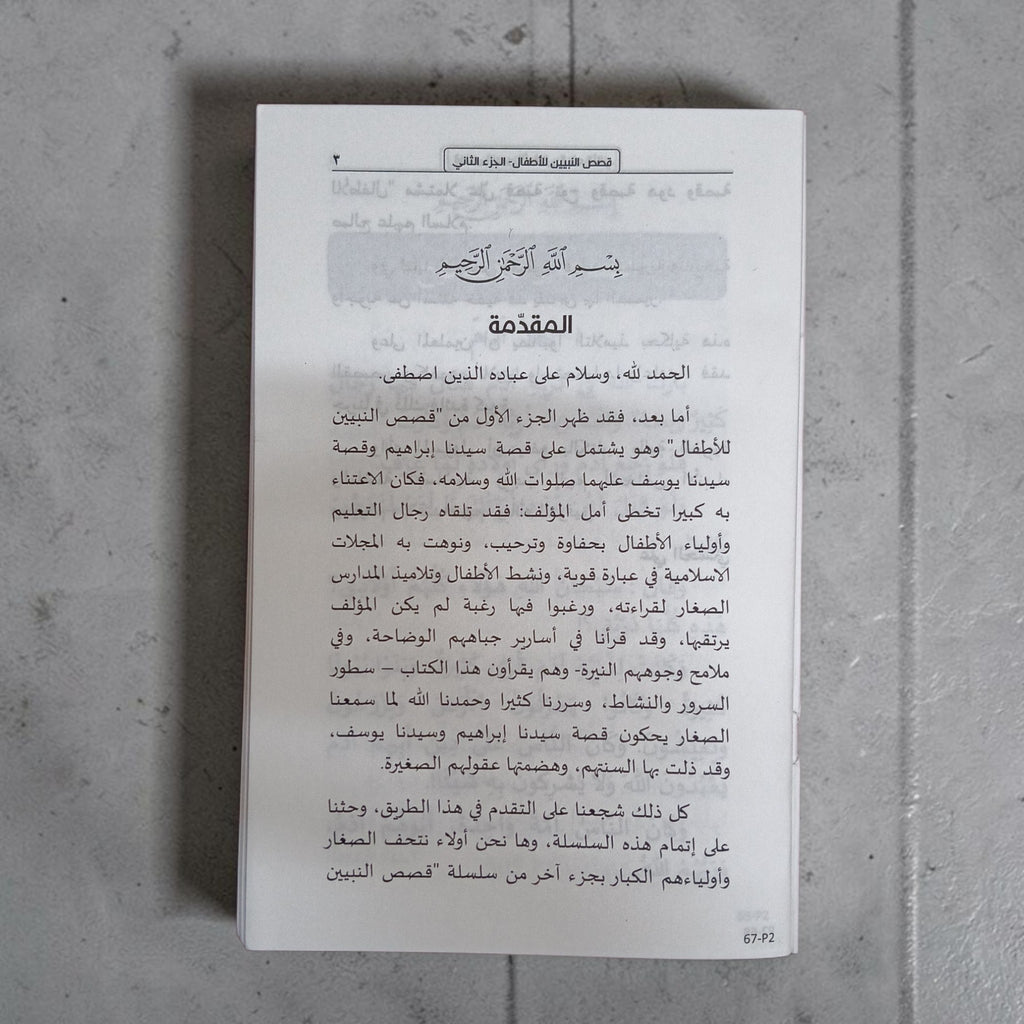 قصص النبيين للأطفال- الجزء الثاني ٣
بِسْمِ ٱللَّهِ ٱلرَّحْمَٰنِ ٱلرَّحِيمِ
المقدّمة
الحمد لله، وسلام على عباده الذين اصطفى.
أما بعد، فقد ظهر الجزء الأول من "قصص النبيين
للأطفال" وهو يشتمل على قصة سيدنا إبراهيم وقصة
سيدنا يوسف عليهما صلوات الله وسلامه، فكان الاعتناء
به كبيرا تخطى أمل المؤلف: فقد تلقاه رجال التعليم
وأولياء الأطفال بحفاوة وترحيب، ونوهت به المجلات
الاسلامية في عبارة قوية، ونشط الأطفال وتلاميذ المدارس
الصغار لقراءته، ورغبوا فيها رغبة لم يكن المؤلف
يرتقبها، وقد قرأنا في أسارير جباههم الوضاحة، وفي
ملامح وجوههم النيرة- وهم يقرأون هذا الكتاب – سطور
السرور والنشاط، وسررنا كثيرا وحمدنا الله لما سمعنا
الصغار يحكون قصة سيدنا إبراهيم وسيدنا يوسف،
وقد ذلت بها السنتهم، وهضمتها عقولهم الصغيرة.
كل ذلك شجعنا على التقدم في هذا الطريق، وحثنا
على إتمام هذه السلسلة، وها نحن أولاء نتحف الصغار
وأولياءهم الكبار بجزء آخر من سلسلة "قصص النبيين
67-P2